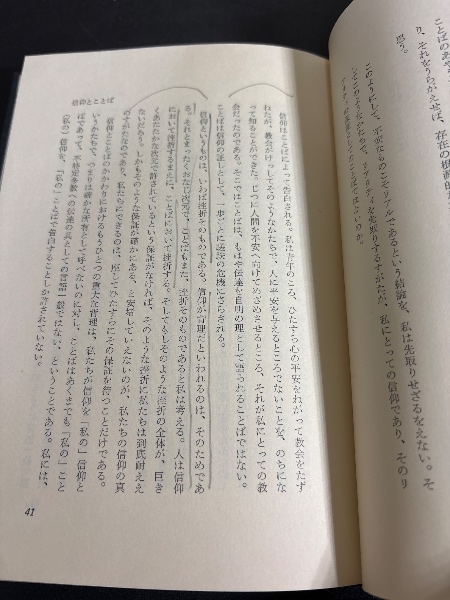 ことばのあや
り、それをうらがえせば、存在の根源的
思う。
このようにして、不安なものこそリアルであるという結論を、私は先取りせざるをえない。そ
してこのようなかたちの、リアリティを先取りするすがたが、私にとっての信仰であり、そのリ
アリティの としてのことばではないのか。
信仰とことば
信仰はことばによって告白される。私は青年のころ、ひたすら心の平安をねがって教会をたず
ねたが、教会がけっしてそのようなかたちで、人に平安を与えるところでないことを、のちにな
って知ることができた。じつに人間を不安へ向けてめざめさせるところ、それが私にとっての教
会だったのである。そこではことばは、もはや伝達を自明の理として語られることばではない。
ことばは信仰の証しとして、一歩ごとに挫折の危機にさらされる。
信仰というものは、いわば挫折そのものである。信仰が背理だといわれるのは、そのためであ
る。それとまったくおなじ次元で、ことばもまた、挫折そのものであると私は考える。人は信仰
において挫折するまえに、ことばにおいて挫折する。そしてもしそのような挫折の全体が、巨き
くあたたかな次元で許されているという保証がなければ、そのような挫折に私たちは到底耐ええ
ないだろう。しかもそのような保証が確かにある、と安堵していえないのが、私たちの信仰の真
のすがたなのであり、私たちにできるのは、座してひたすらにその保証を待つことだけである。
信仰とことばのかかわりにおけるもうひとつの重大な背理は、私たちが信仰を「私の」信仰と
いうかたちで、つまりは確かな所有として呼べないのに対し、ことばはあくまでも「私の」こと
ばであって、不特定多数への伝達の具としての言語一般ではない、ということである。私には、
（私の）信仰を、「私の」ことばで告白することしか許されていない。
41